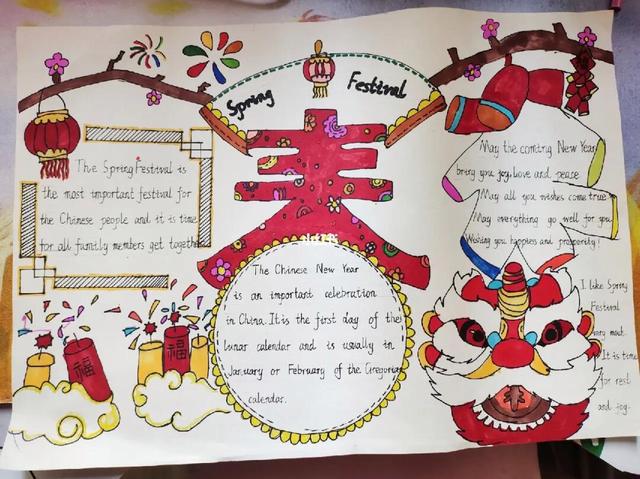 Spring Festival
The Spring Festival is
the most important festival for
the Chinese people and it is time
for all family members get together
春
福
福
The Chinese New Year
is an important celebration
in China. It is the first day of the
lunar calendar and is usually in
January or February of the Gregorian
calendar.
May the coming New Year
bring you joy, love and peace
May all you wishes come true
May everything go well for you
Wishing you happiess and prosperity!
I like Spring
Festival
very much.
It is time
for rest
and joy.